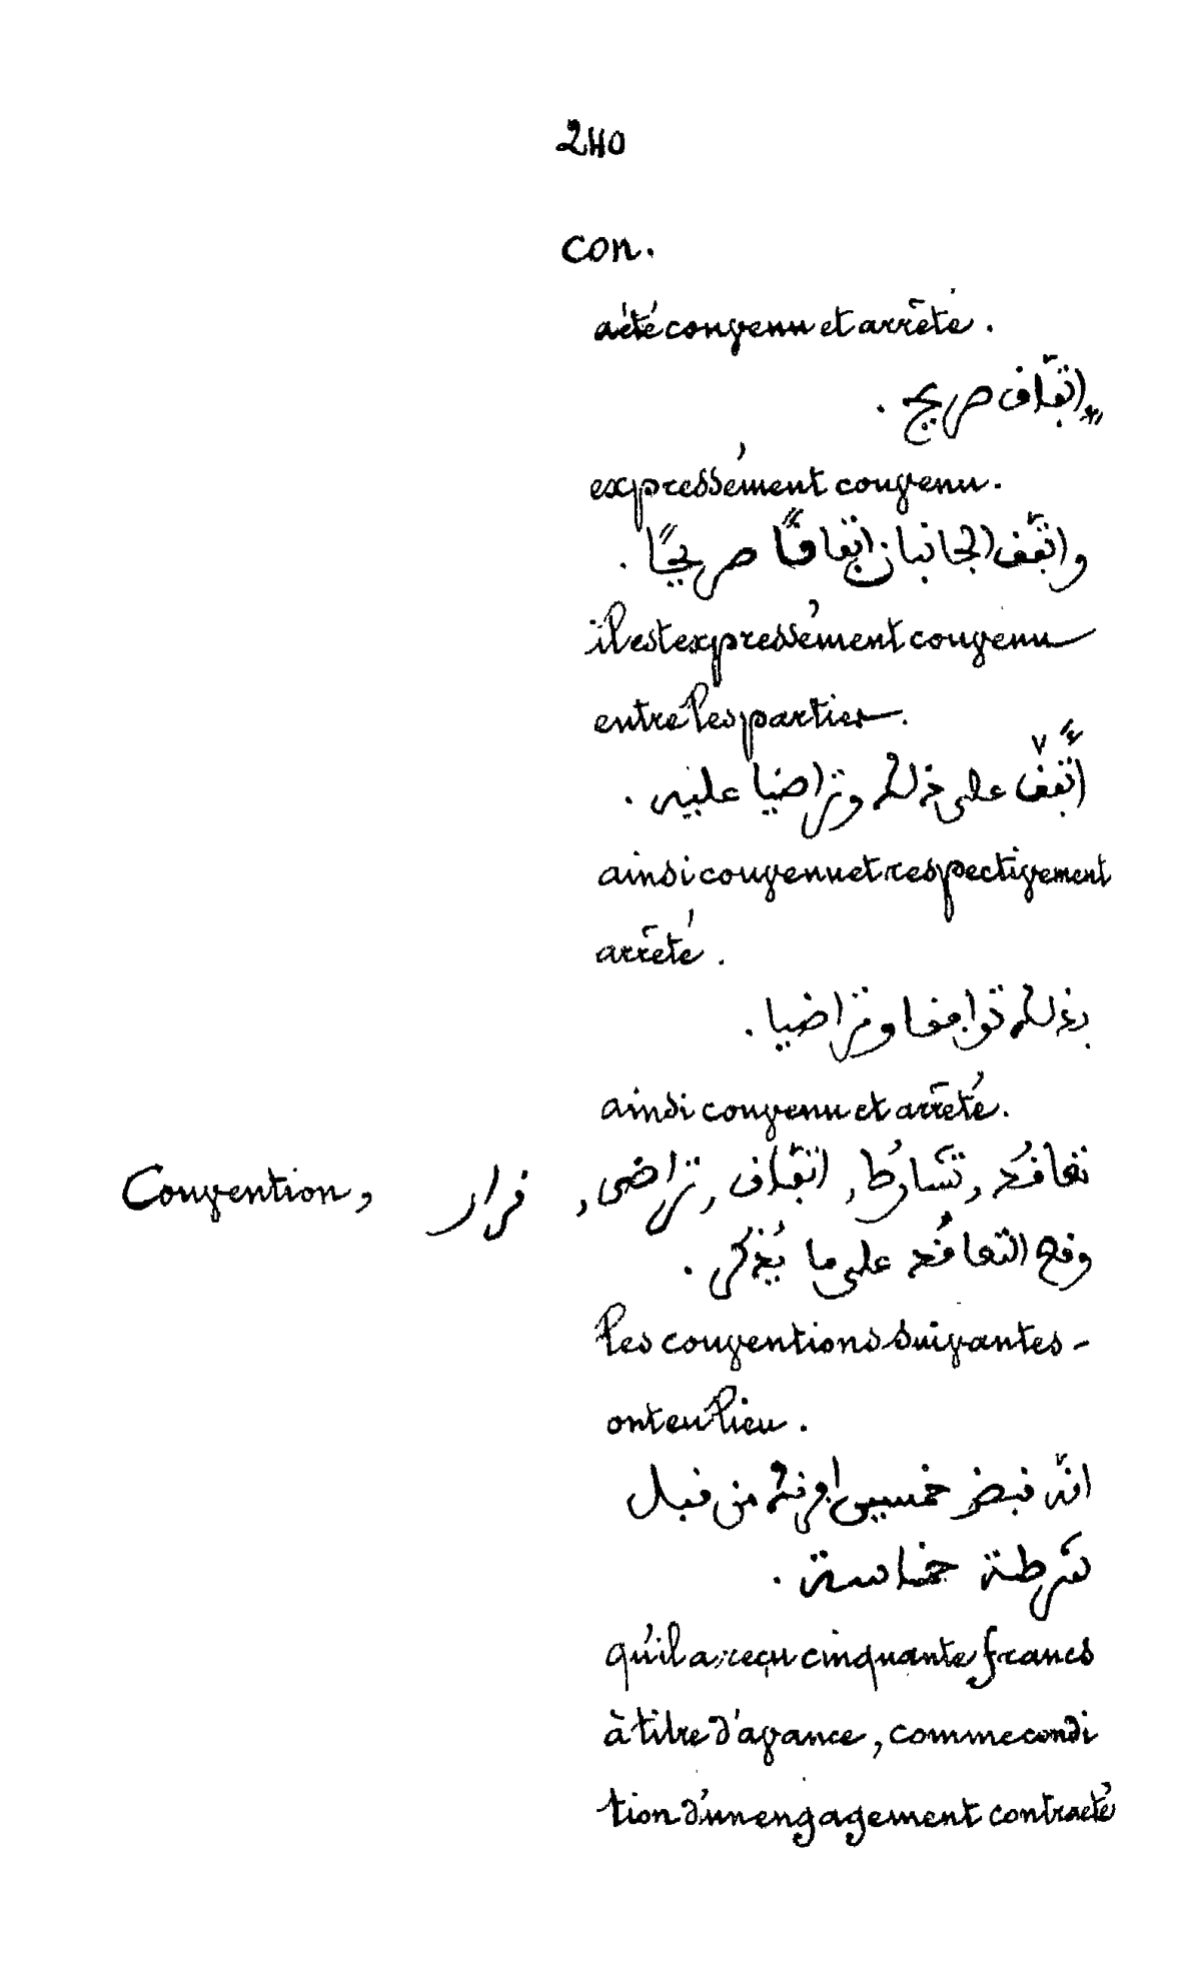 240
con.
a été convenu et arrêté.
اتّفاق صريح.
expressément convenu.
واتّفق الجانبان اتفاقًا صريحًا.
il est expressément convenu
entre les parties.
اتّفق على ذلك وتراضيا عليه.
ainsi convenu et respectivement
arrêté.
بذلك توافقا وتراضيا.
ainsi convenu et arrêté.
Convention, تعاقُد, تشارُط, اتّفاق, تراضى, قرار
وقع التعاقُد على ما يُذكر.
les conventions suivantes-
ont eu lieu.
انّه قبض خمسين افرنك من قبل
شرطة خماسة.
qu'il a reçu cinquante francs
à titre d'avance, comme condi
tion d'un engagement contracté